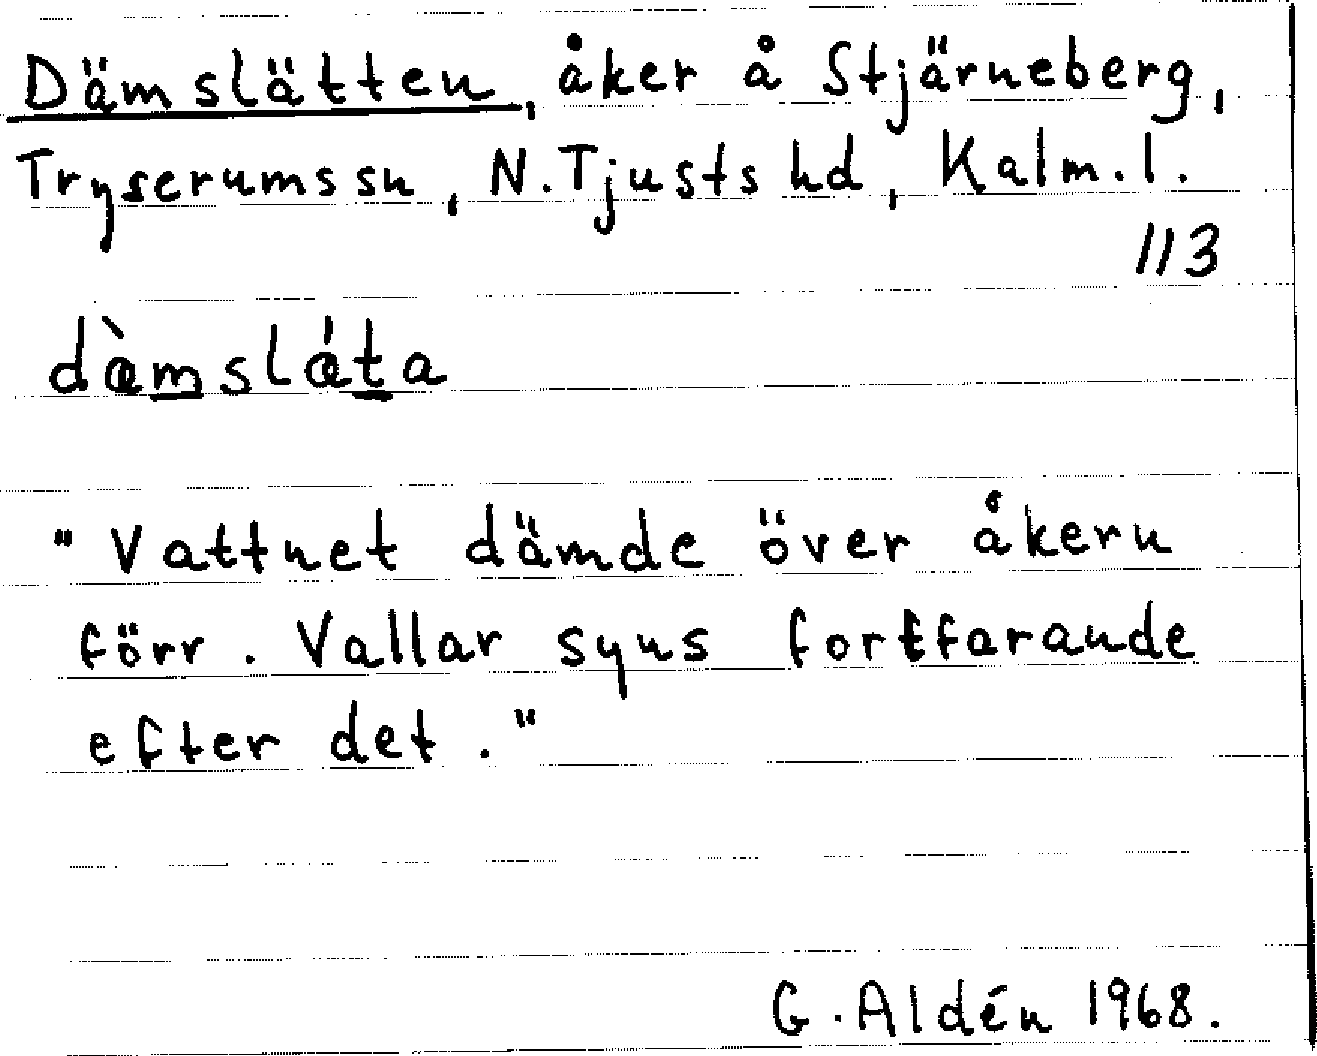 Dämslätten, åker å Stjärneberg,
Tryserumssn, N.Tjusts hd, Kalm.l.
113
dæ̀mslǽta
"Vattnet dämde över åkern
förr. Vallar syns fortfarande
efter det."
G. Aldén 1968.